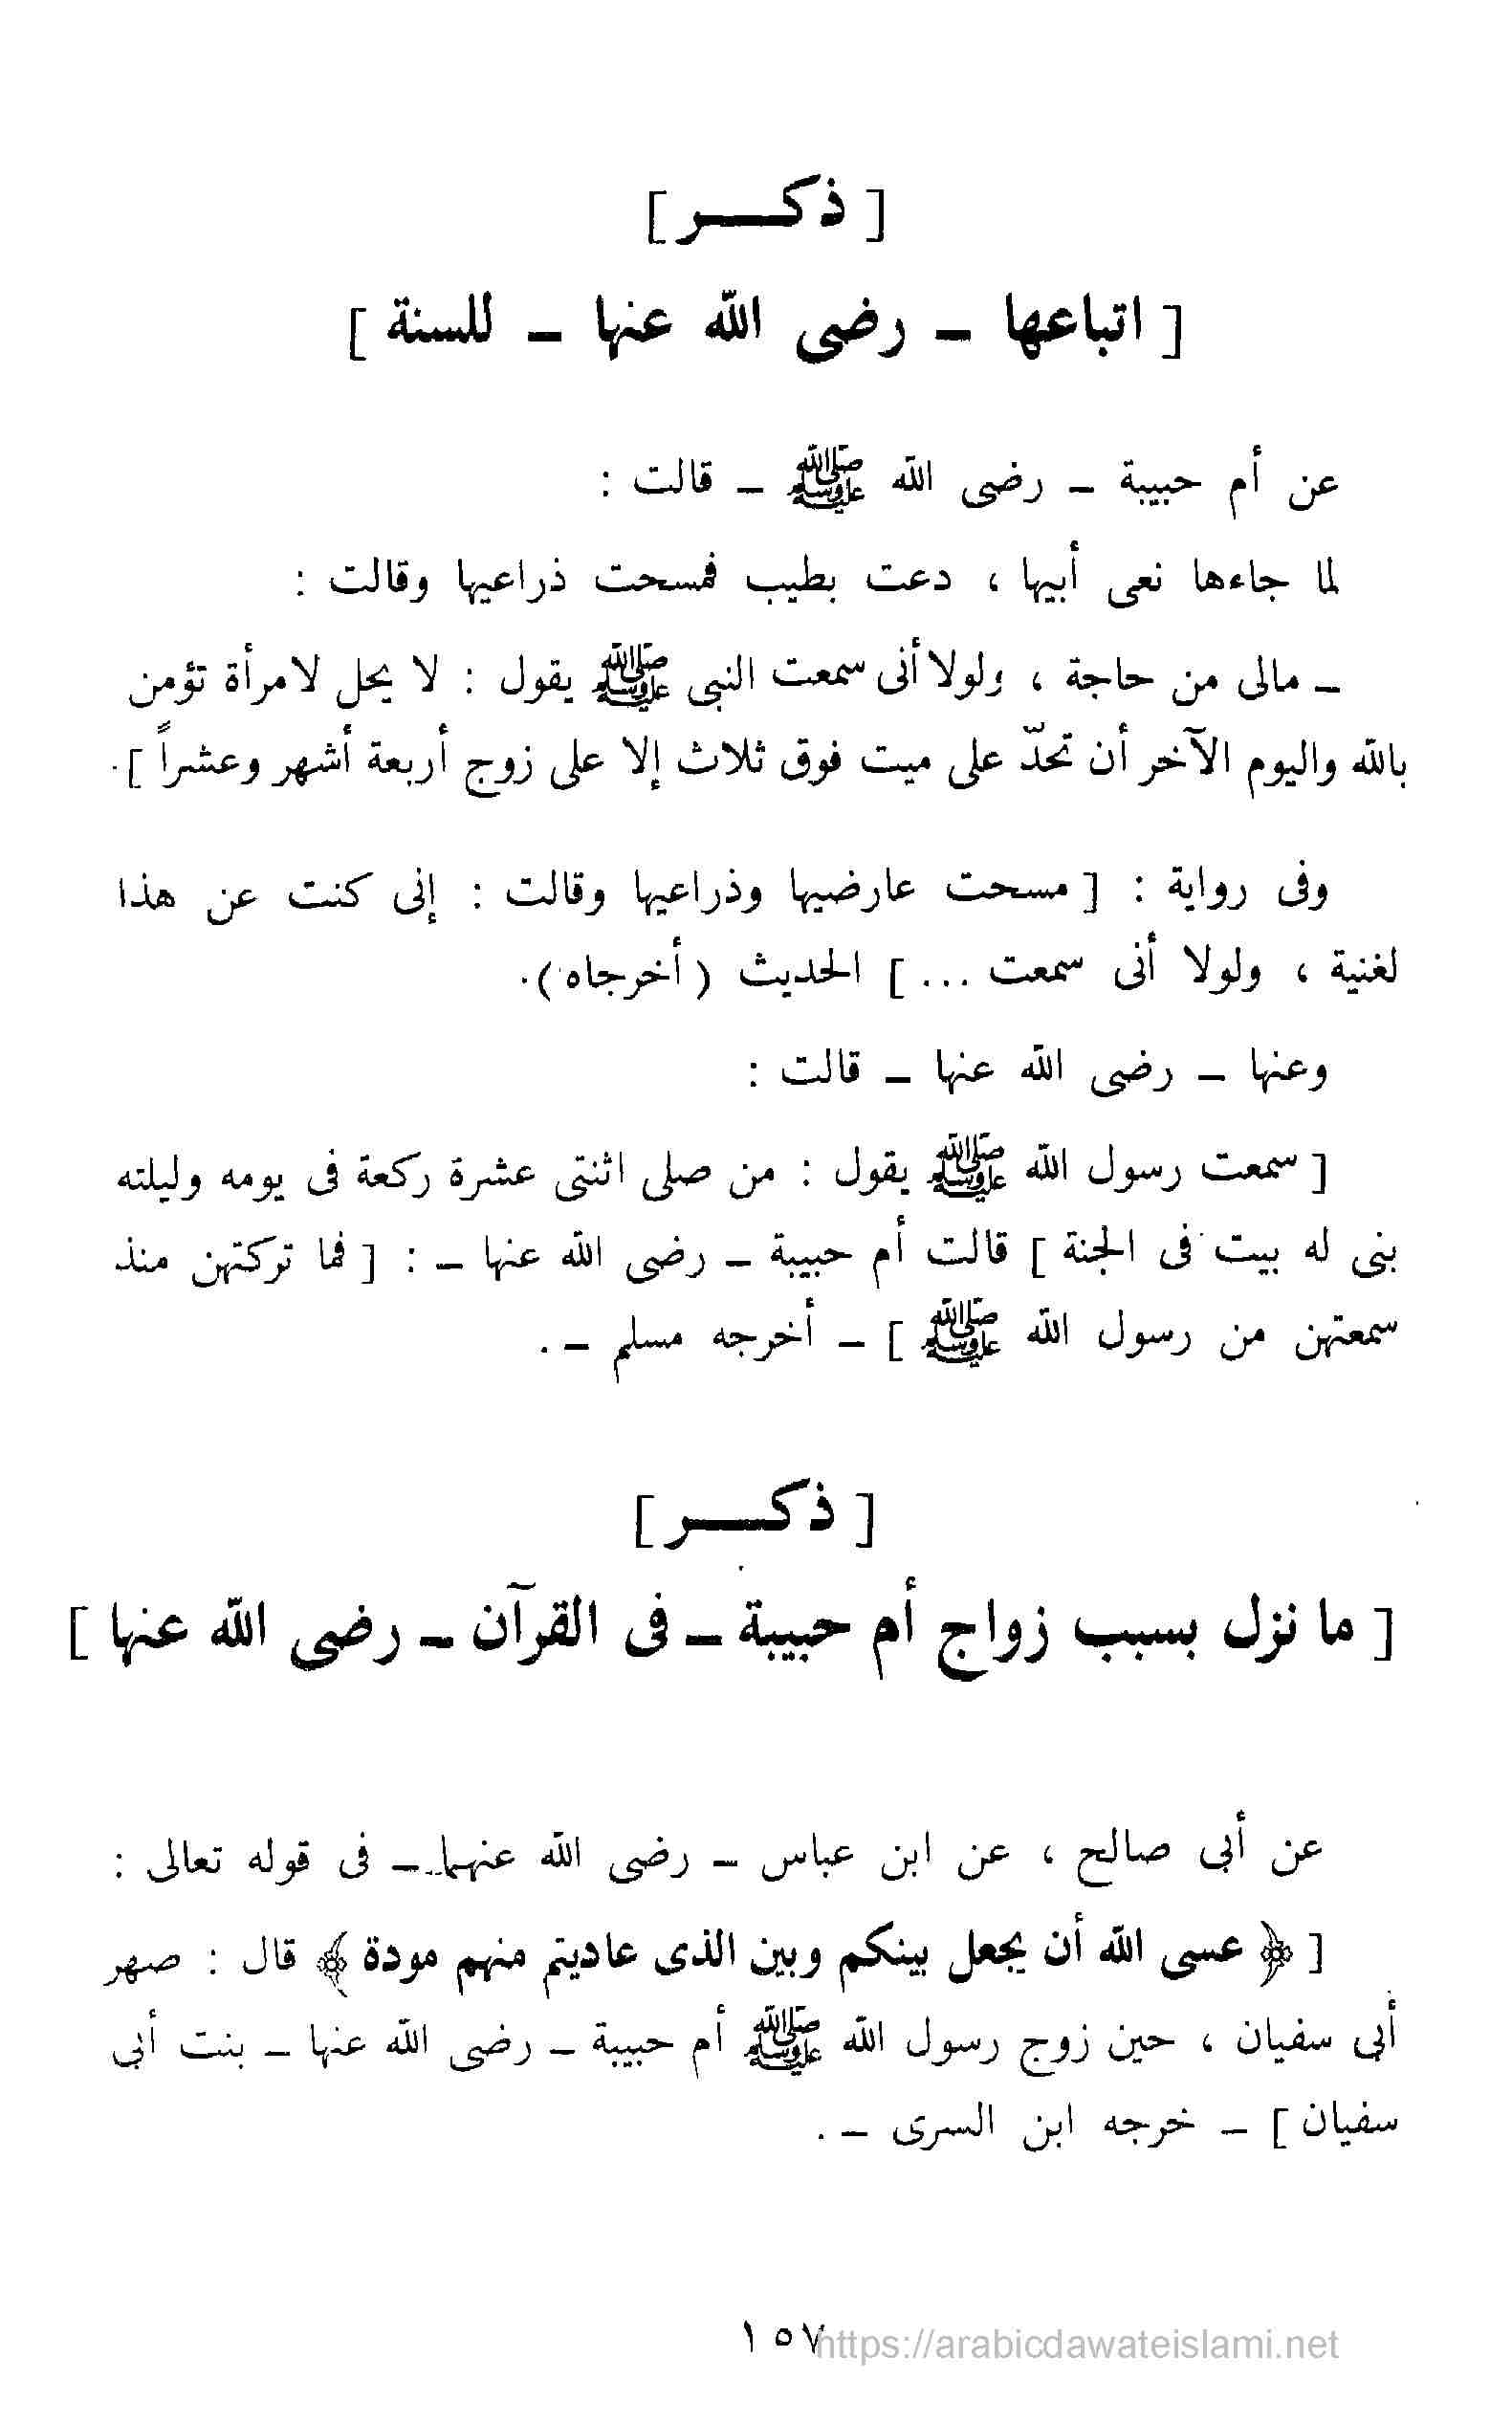 [ ذكـــر ]
[ اتباعها ــ رضى الله عنها ــ للسنة ]
عن أم حبيبة ــ رضى الله ﷺ ــ قالت :
لما جاءها نعى أبيها ، دعت بطيب فمسحت ذراعيها وقالت :
ــ مالى من حاجة ، ولولا أنى سمعت النبى ﷺ يقول : لا يحل لامرأة تؤمن
بالله واليوم الآخر أن تحدّ على ميت فوق ثلاث إلا على زوج أربعة أشهر وعشراً ] .
وفى رواية : [ مسحت عارضيها وذراعيها وقالت : إنى كنت عن هذا
لغنية ، ولولا أنى سمعت ... ] الحديث ( أخرجاه ) .
وعنها ــ رضى الله عنها ــ قالت :
[ سمعت رسول الله ﷺ يقول : من صلى اثنتى عشرة ركعة فى يومه وليلته
بنى له بيت فى الجنة ] قالت أم حبيبة ــ رضى الله عنها ــ : [ فما تركتهن منذ
سمعتهن من رسول الله ﷺ ] ــ أخرجه مسلم ــ .
[ ذكـــر ]
[ ما نزل بسبب زواج أم حبيبة ــ فى القرآن ــ رضى الله عنها ]
عن أبى صالح ، عن ابن عباس ــ رضى الله عنهما ــ فى قوله تعالى :
[ ﴿ عسى الله أن يجعل بينكم وبين الذى عاديتم منهم مودة ﴾ قال : صهر
أبى سفيان ، حين زوج رسول الله ﷺ أم حبيبة ــ رضى الله عنها ــ بنت أبى
سفيان ] ــ خرجه ابن السرى ــ .
١٥٧
https://arabicdawateislami.net